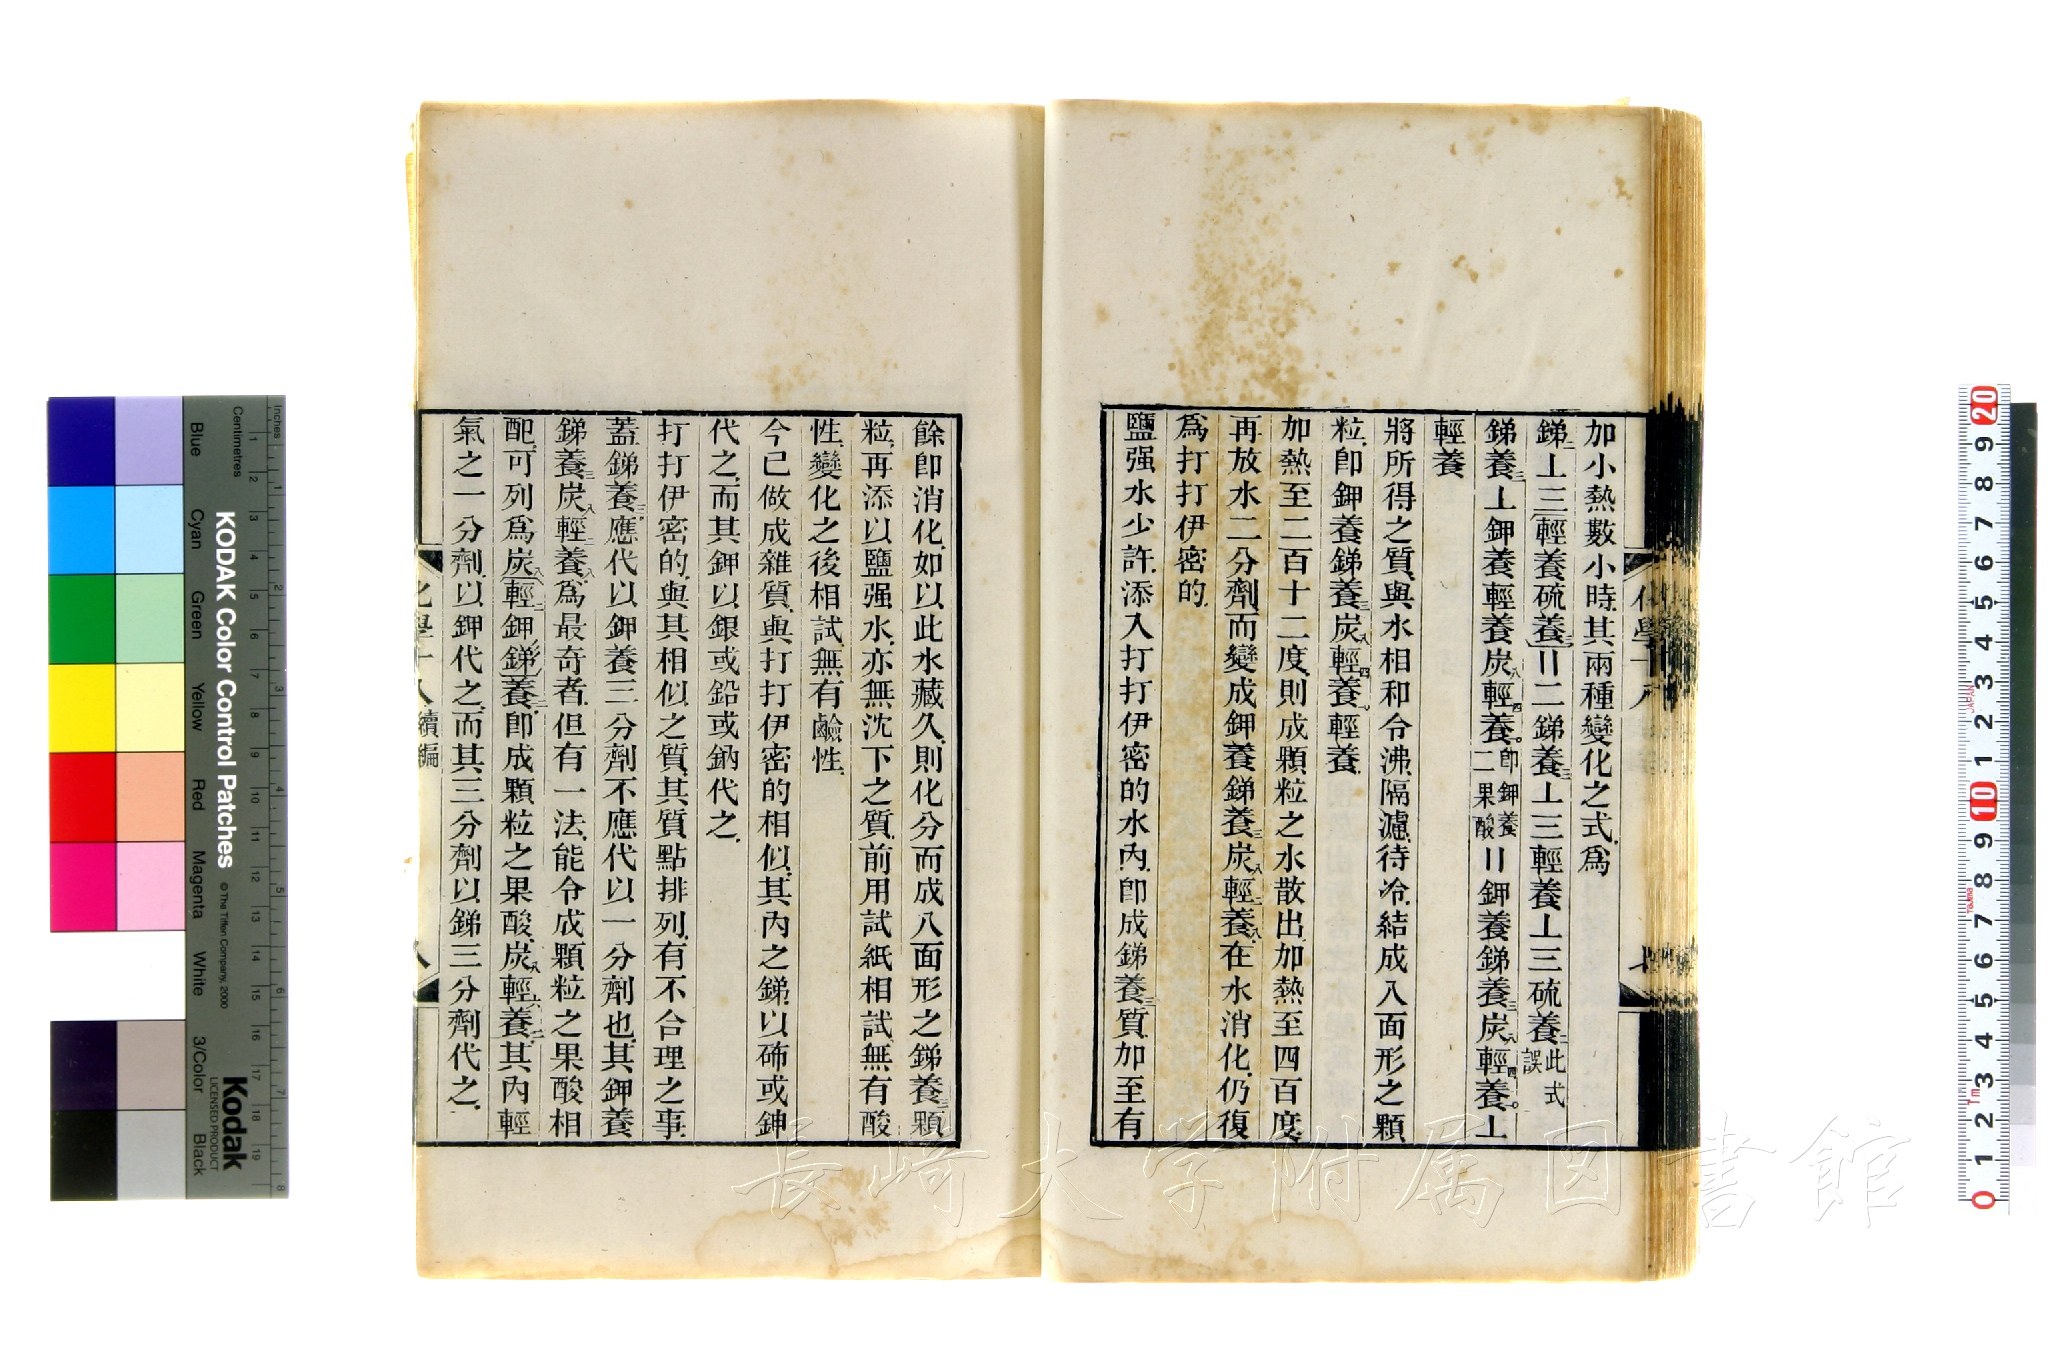 加小熱數小時其兩種變化之式爲
銻三丄三(輕養硫養三)〢二銻養三丄三輕養丄三硫養二此式誤
銻養三丄鉀養輕養炭八輕四養。即鉀養二果酸〢鉀養銻養三炭八輕四養。丄
輕養
將所得之質與水相和令沸隔濾待冷結成八面形之顆
粒卽鉀養銻養三炭八輕四養輕養
加熱至二百十二度則成顆粒之水散出加熱至四百度
再放水二分劑而變成鉀養銻養三炭八輕二養八在水消化仍復
爲打打伊密的
鹽强水少許添入打打伊密的水內卽成銻養三質加至有
化學十八
七
餘卽消化如以此水藏久則化分而成八面形之銻養三顆
粒再添以鹽强水亦無沈下之質前用試紙相試無有酸
性變化之後相試無有鹼性
今已做成雜質與打打伊密的相似其內之銻以砷或鉮
代之而其鉀以銀或鉛或鈉代之
打打伊密的與其相似之質其質點排列有不合理之事
蓋銻養三應代以鉀養三分劑不應代以一分劑也其鉀養
銻養三炭八輕二養八爲最奇者但有一法能令成顆粒之果酸相
配可列爲炭八輕二鉀銻養三卽成顆粒之果酸炭八輕六養三其內輕
氣之一分劑以鉀代之而其三分劑以銻三分劑代之
化學十八 續編
八
KODAK Color Control Patches
©The Tiffen Company, 2000
Kodak
LICENSED PRODUCT
Inches
Centimetres
Blue
Cyan
Green
Yellow
Red
Magenta
White
3/Color
Black
長崎大学附属図書館